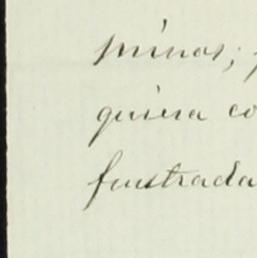 minos;
quiera co
frustrada